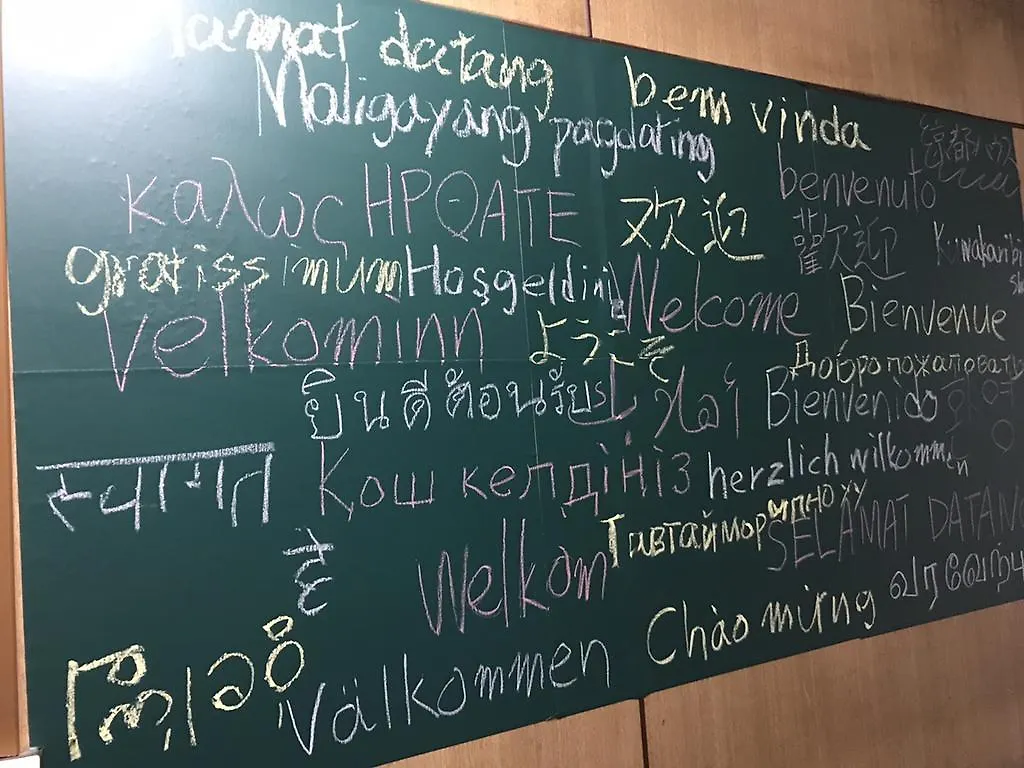 datang
Maligayang pagdating
bem vinda
καλως ΗΡΘΑΤΕ
欢迎
benvenuto
歡迎
gratissimum
Hoşgeldiniz
Velkominn
ようこそ
Welcome
Bienvenue
Добро пожаловать
ยินดีต้อนรับ
Bienvenido
स्वागत
है
Қош келдіңіз
herzlich willkommen
Тавтай морилно уу
SELAMAT DATANG
Welkom
Chào mừng
Välkommen